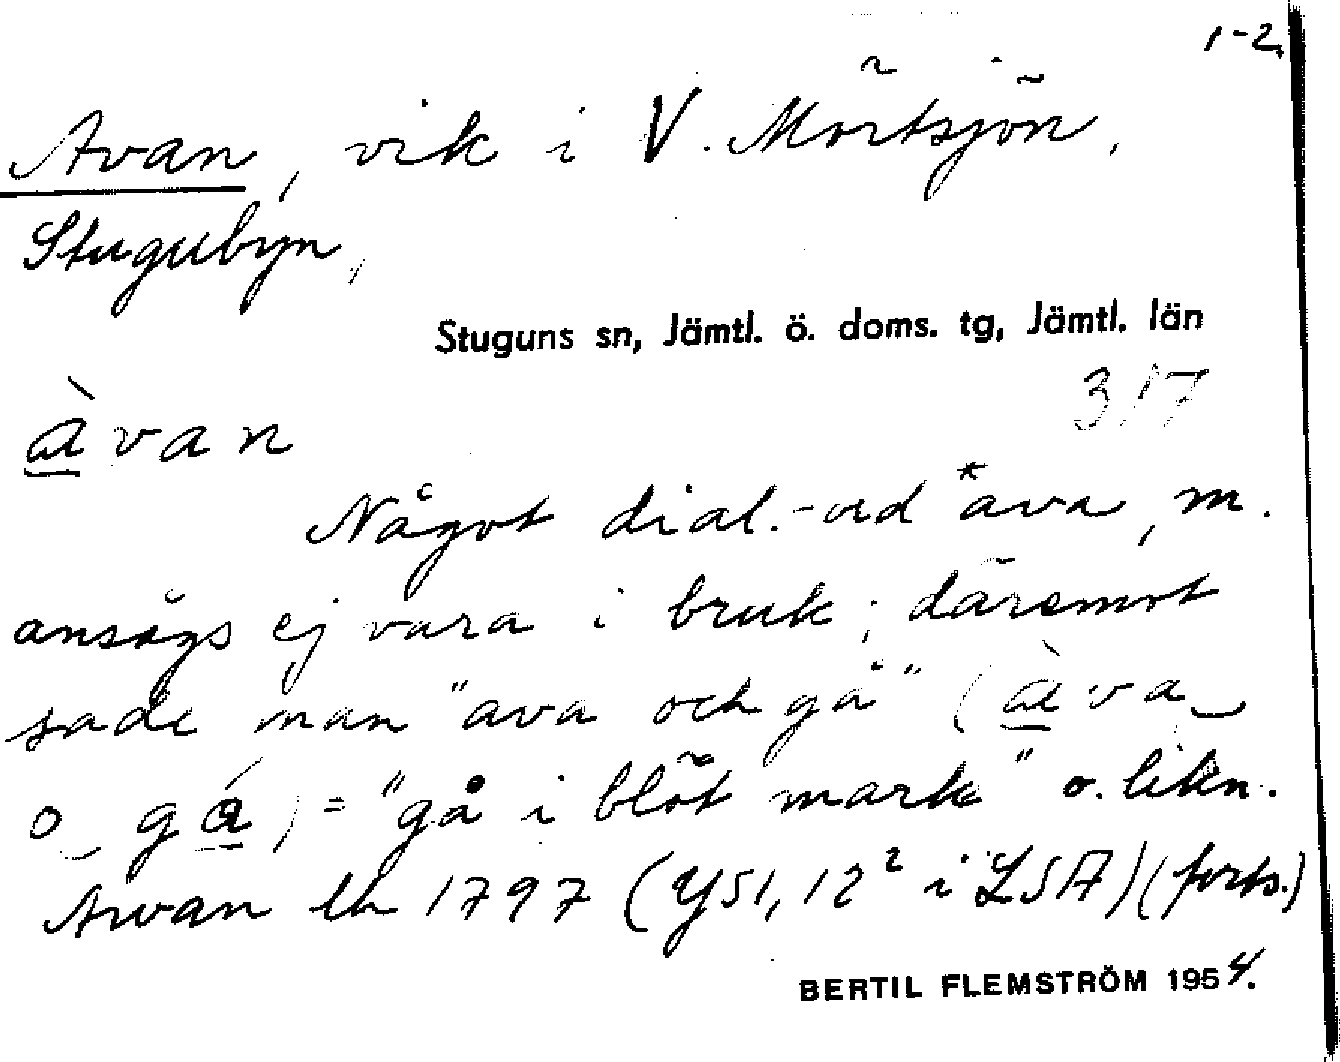 1-2.
Avan, vik i V. Mörtsjön,
Stugubyn,
Stuguns sn, Jämtl. ö. doms. tg, Jämtl. län
317
àvan
Något dial.-ord *ava, m.
ansågs ej vara i bruk; däremot
sade man "ava och gå" (àva
o gá) = "gå i blöt mark" o. likn.
Awan lh 1797 (Y51, 12² i LSA) (forts.)
BERTIL FLEMSTRÖM 1954.